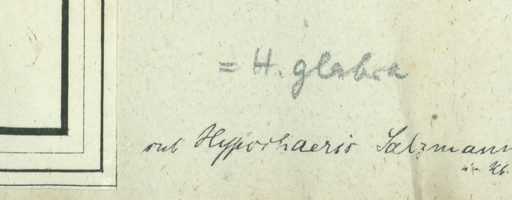 = H. glabra
sub Hypochaeris Salzmann
in Hb.